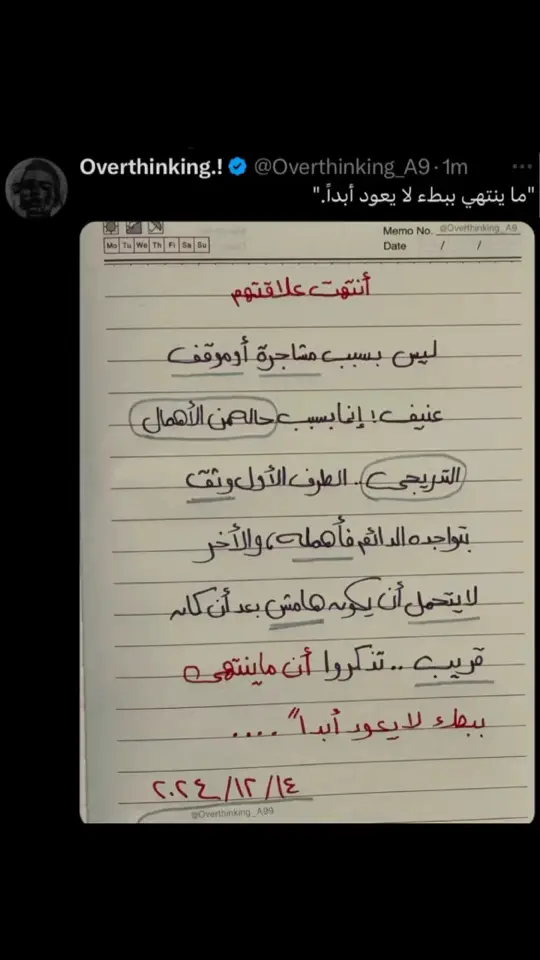 Overthinking.! @Overthinking_A9 · 1m
"ما ينتهي ببطء لا يعود أبداً."
Memo No. @Overthinking_A9
Mo Tu We Th Fi Sa Su
Date / /
أنتهت علاقتهم
ليس بسبب مشاجرة أو موقف
عنيف! إنما بسبب حاله من الأهمال
التدريجي.. الطرف الأول وثق
بتواجده الدائم فأهمله، والأخر
لا يتحمل أن يكون هامش بعد أن كان
قريب.. تذكروا أن ما ينتهي
ببطء لا يعود أبداً"....
٢٠٢٤/١٢/١٤
@Overthinking_A99